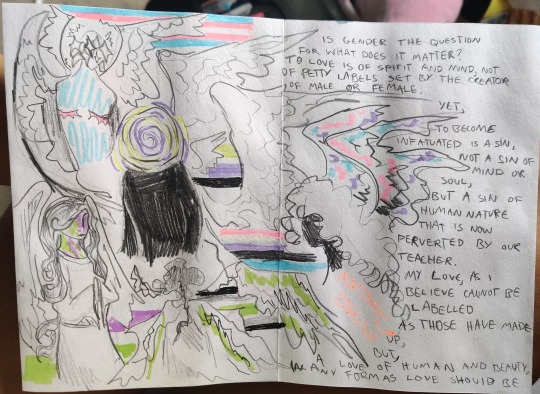 IS GENDER THE QUESTION
FOR WHAT DOES IT MATTER?
TO LOVE IS OF SPIRIT AND MIND, NOT
OF PETTY LABELS SET BY THE CREATOR
OF MALE OR FEMALE.
YET,
TO BECOME
INFATUATED IS A SIN,
NOT A SIN OF
MIND OR
SOUL,
BUT A SIN OF
HUMAN NATURE
THAT IS NOW
PERVERTED BY OUR
TEACHER.
MY LOVE, AS I
BELIEVE CANNOT BE
LABELLED
AS THOSE HAVE MADE
UP,
BUT,
A LOVE OF HUMAN AND BEAUTY,
ANY FORM AS LOVE SHOULD BE